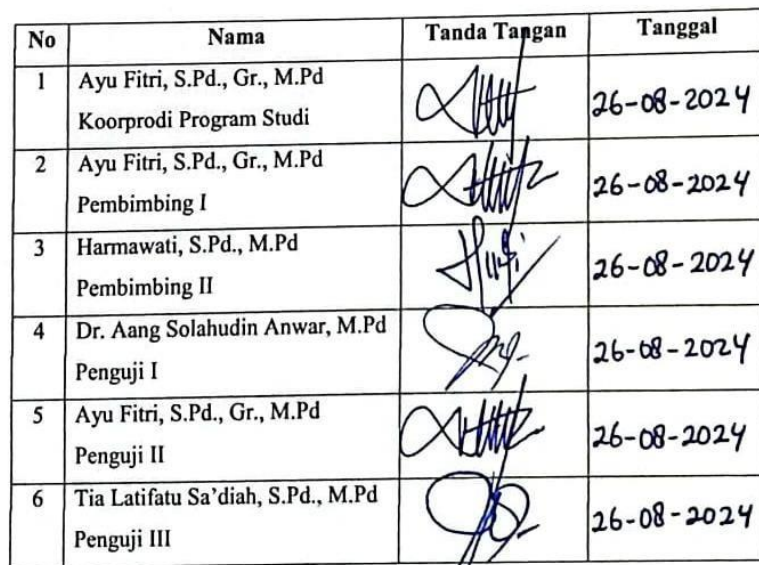 No Nama Tanda Tangan Tanggal
1 Ayu Fitri, S.Pd., Gr., M.Pd
Koorprodi Program Studi
26-08-2024
2 Ayu Fitri, S.Pd., Gr., M.Pd
Pembimbing I
26-08-2024
3 Harmawati, S.Pd., M.Pd
Pembimbing II
26-08-2024
4 Dr. Aang Solahudin Anwar, M.Pd
Penguji I
26-08-2024
5 Ayu Fitri, S.Pd., Gr., M.Pd
Penguji II
26-08-2024
6 Tia Latifatu Sa’diah, S.Pd., M.Pd
Penguji III
26-08-2024